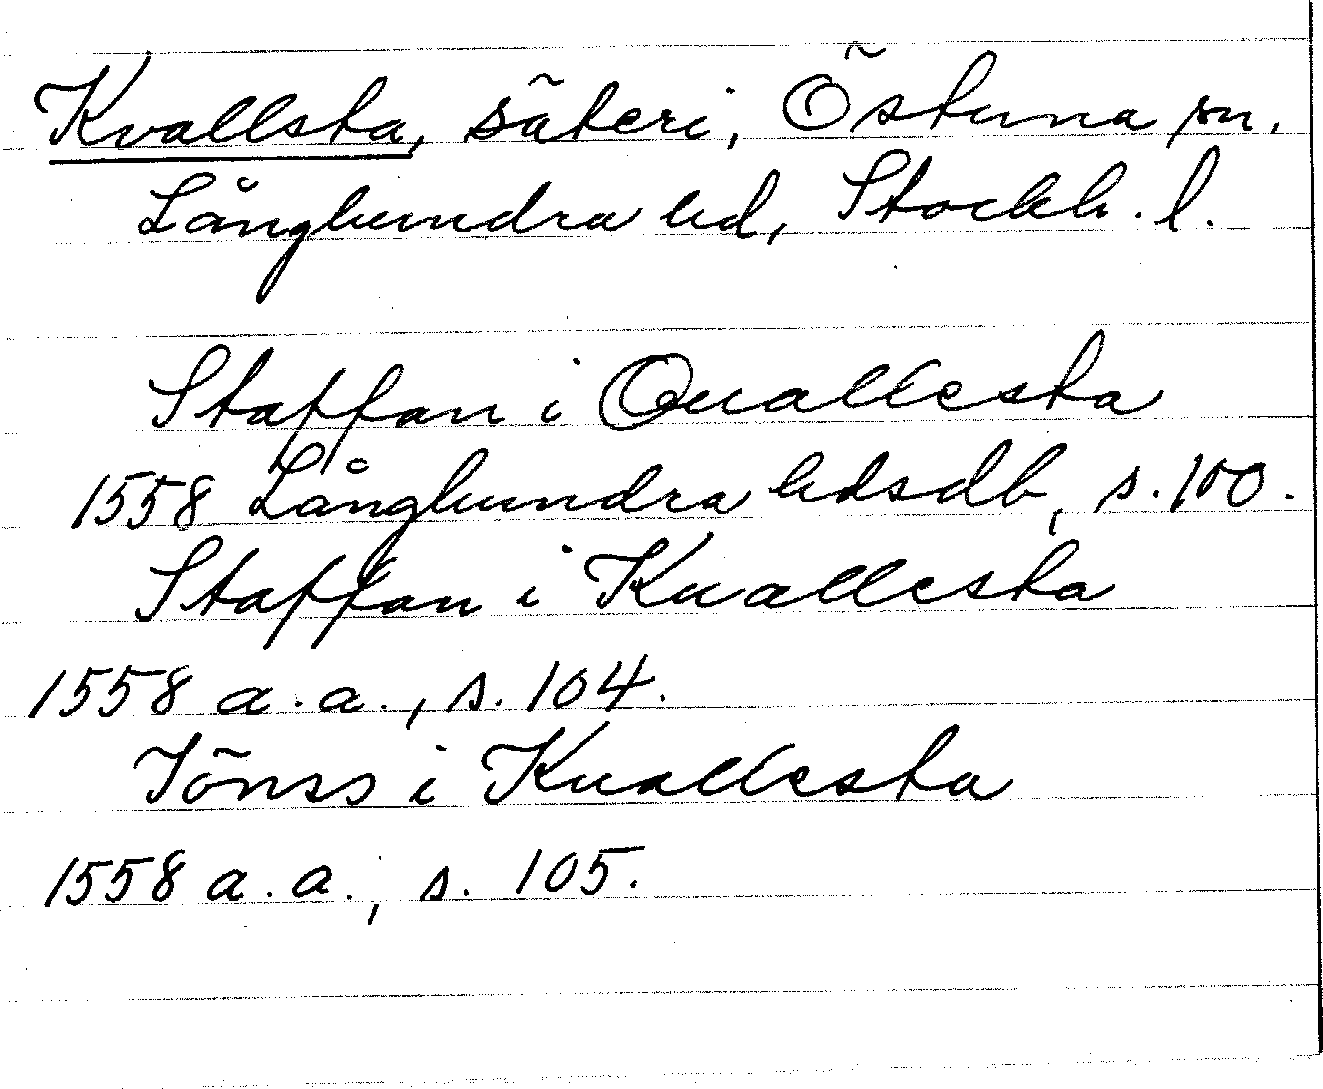 Kvallsta, säteri, Östuna sn.
Långhundra hd, Stockh. l.
Staffan i Quallesta
1558 Långhundra hdsdb, s. 100.
Staffan i Kuallesta
1558 a. a., s. 104.
Jönss i Kuallesta
1558 a. a., s. 105.